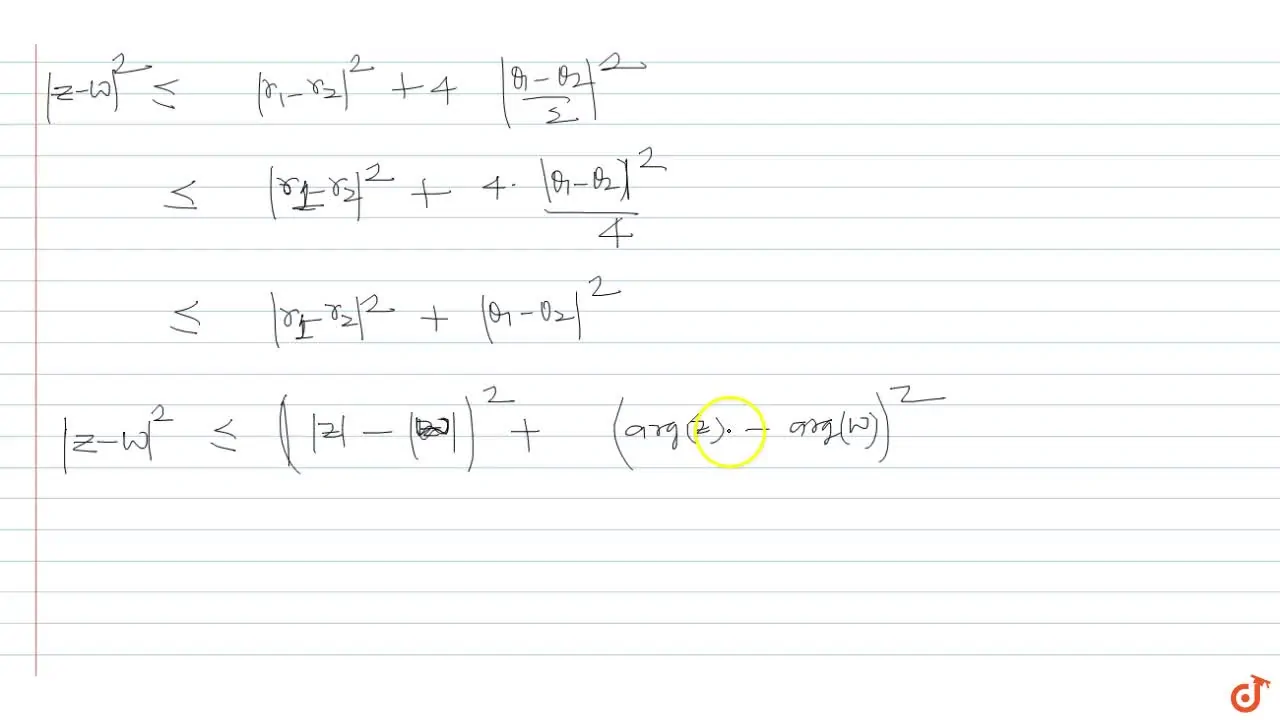 |z-w|² ≤ |r₁-r₂|² + 4 |(θ₁-θ₂)/2|²
≤ |r₁-r₂|² + 4. |θ₁-θ₂|²/4
≤ |r₁-r₂|² + |θ₁-θ₂|²
|z-w|² ≤ (|z| - |w|)² + (arg(z). - arg(w))²